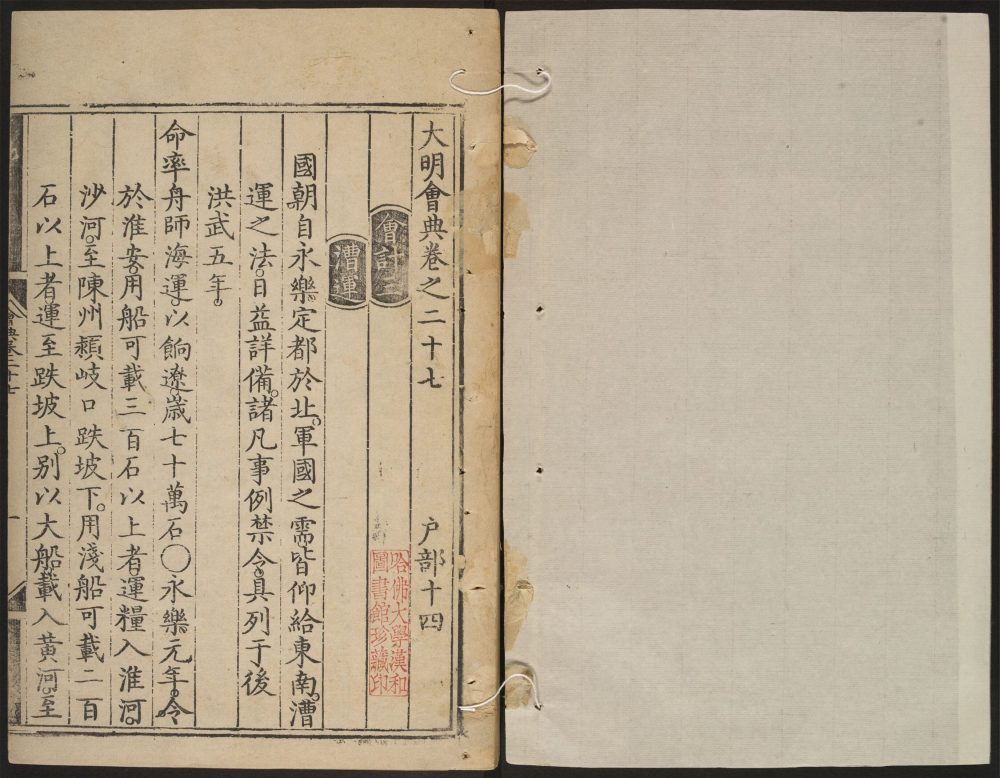 大明會典卷之二十七 户部十四
會計三
哈佛大學漢和
圖書館珍藏印
漕運
國朝自永樂定都於北。軍國之需。皆仰給東南。漕
運之法。日益詳備。諸凡事例禁令。具列于後
洪武五年。
命率舟師海運。以餉遼。歲七十萬石〇永樂元年。令
於淮安。用船可載三百石以上者。運糧入淮河。
沙河。至陳州潁岐口跌坡下。用淺船可載二百
石以上者。運至跌坡上。別以大船載入黄河。至
會典卷二十七
一